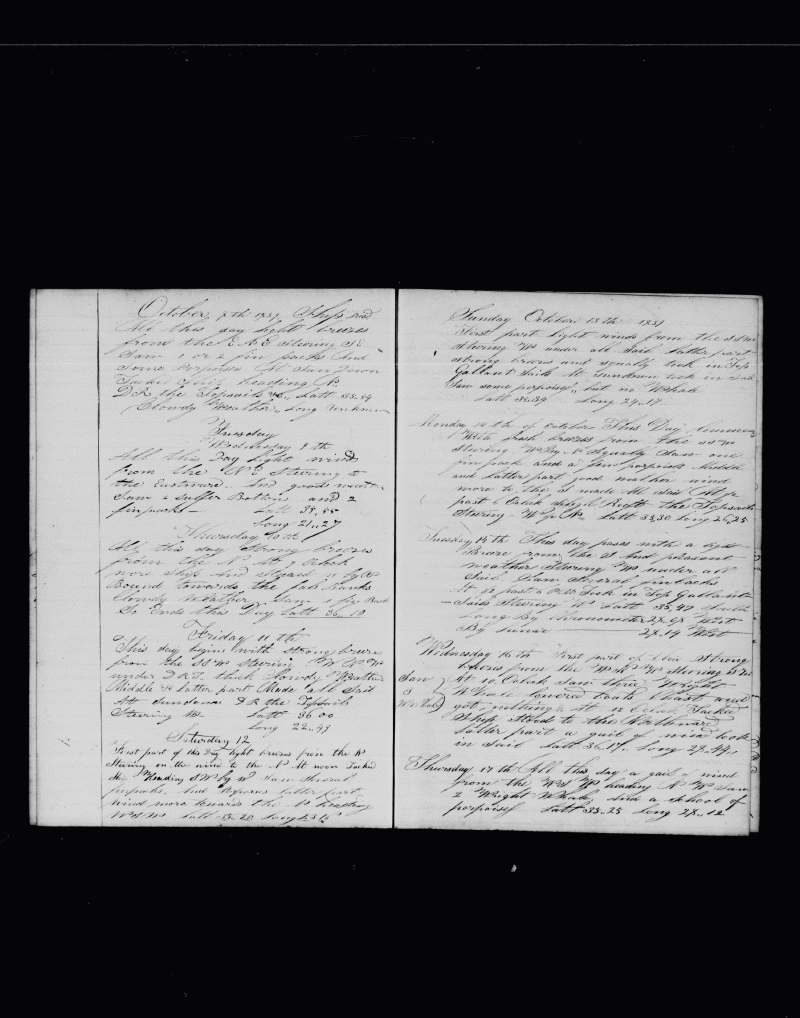 October 8th 1839 Ship
All this day light breezes
from the ENE Steering SE
Saw 1 or 2 fin backs And
Some Porpoises At Sun Down
Tacked Ship heading N
D R the Topsails &c Latt 35.54
Cloudy Weather Long unknown
Tuesday
Wednesday 9th
All this Day light winds
from the NE Steering to
the Eastward And good weather
Saw 2 Suffer Bottoms and 2
finbacks Latt 35,,55
Long 21,,27
Thursday 10th
All this day Strong breezes
from the N At 7 Oclock
wore Ship And Steared
Bound towards the
Cloudy weather Saw 1 fin Back
So Ends this Day Latt 36,,10
Friday 11th
This day begins with Strong breezes
from the SSW Steering
under D.R.T. thick Cloudy Weather
Middle & latter part Made all Sail
At Sundown D R the Topsails
Steering W Latt 36 00
Long 22,,49
Saturday 12
First part of this Day light breezes from the W
Steering on the wind to the N At noon Tacked
Ship Heading SW by W Saw Several
finbacks And latter part
wind more towards the heading
Latt 35.20 Long
Sunday October 13th 1839
First part light winds from the SSW
Steering W under all Sail latter part
strong breezes and squally took in Top
Gallant Sails At Sundown took in
Saw some porpoises but no Whales
Latt 35,,39 Long 24,,17
Monday 14th of October This Day commences
With fresh breezes from the SSW
Steering W By N Squally Saw one
finback and a few porpoises Middle
and Latter part good weather wind
more to the S made All Sail At
past 6 Oclock Reeft the Topsails
Steering Latt 35,30 Long 26,25
Tuesday 15th This day passes with a light
Breeze from the S And pleasant
weather Steering W under all
Sail Saw Several finbacks
At past 6 Took in Top Gallant
Sails Steering W Latt 35,47
Long By Chronometer West
By Lunar 28,,19 West
Wednesday 16th First part of this Strong
breezes from the Steering
Saw
3
Whales
At 10 Oclock Saw three Wright
Whale lowered boats
got nothing At 12 Oclock Tacked
Ship Stood to the Northward
Latter part a gail of wind took
in Sail Latt 36.17 Long 28.44
Thursday 17th All this day a gail of wind
from the heading Saw
2 Wright Whales And a School of
porpoises Latt 35,,25 Long 28,,12